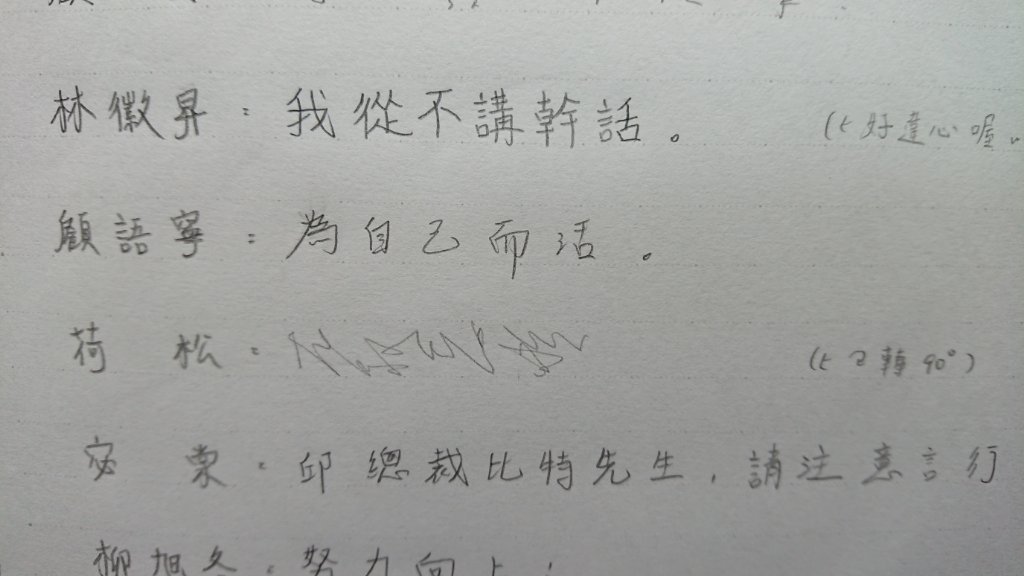 林徽昇：我從不講幹話。 (ㄏ好達心喔。
顧語寧：為自己而活。
荷松： (ㄏ可轉90°)
宓棠：邱總裁比特先生，請注意言行
柳旭冬：努力向上！